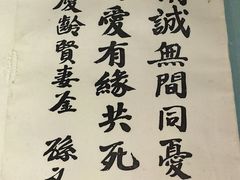 誠無間同憂
愛有緣共死
慶齡賢妻鉴 孫